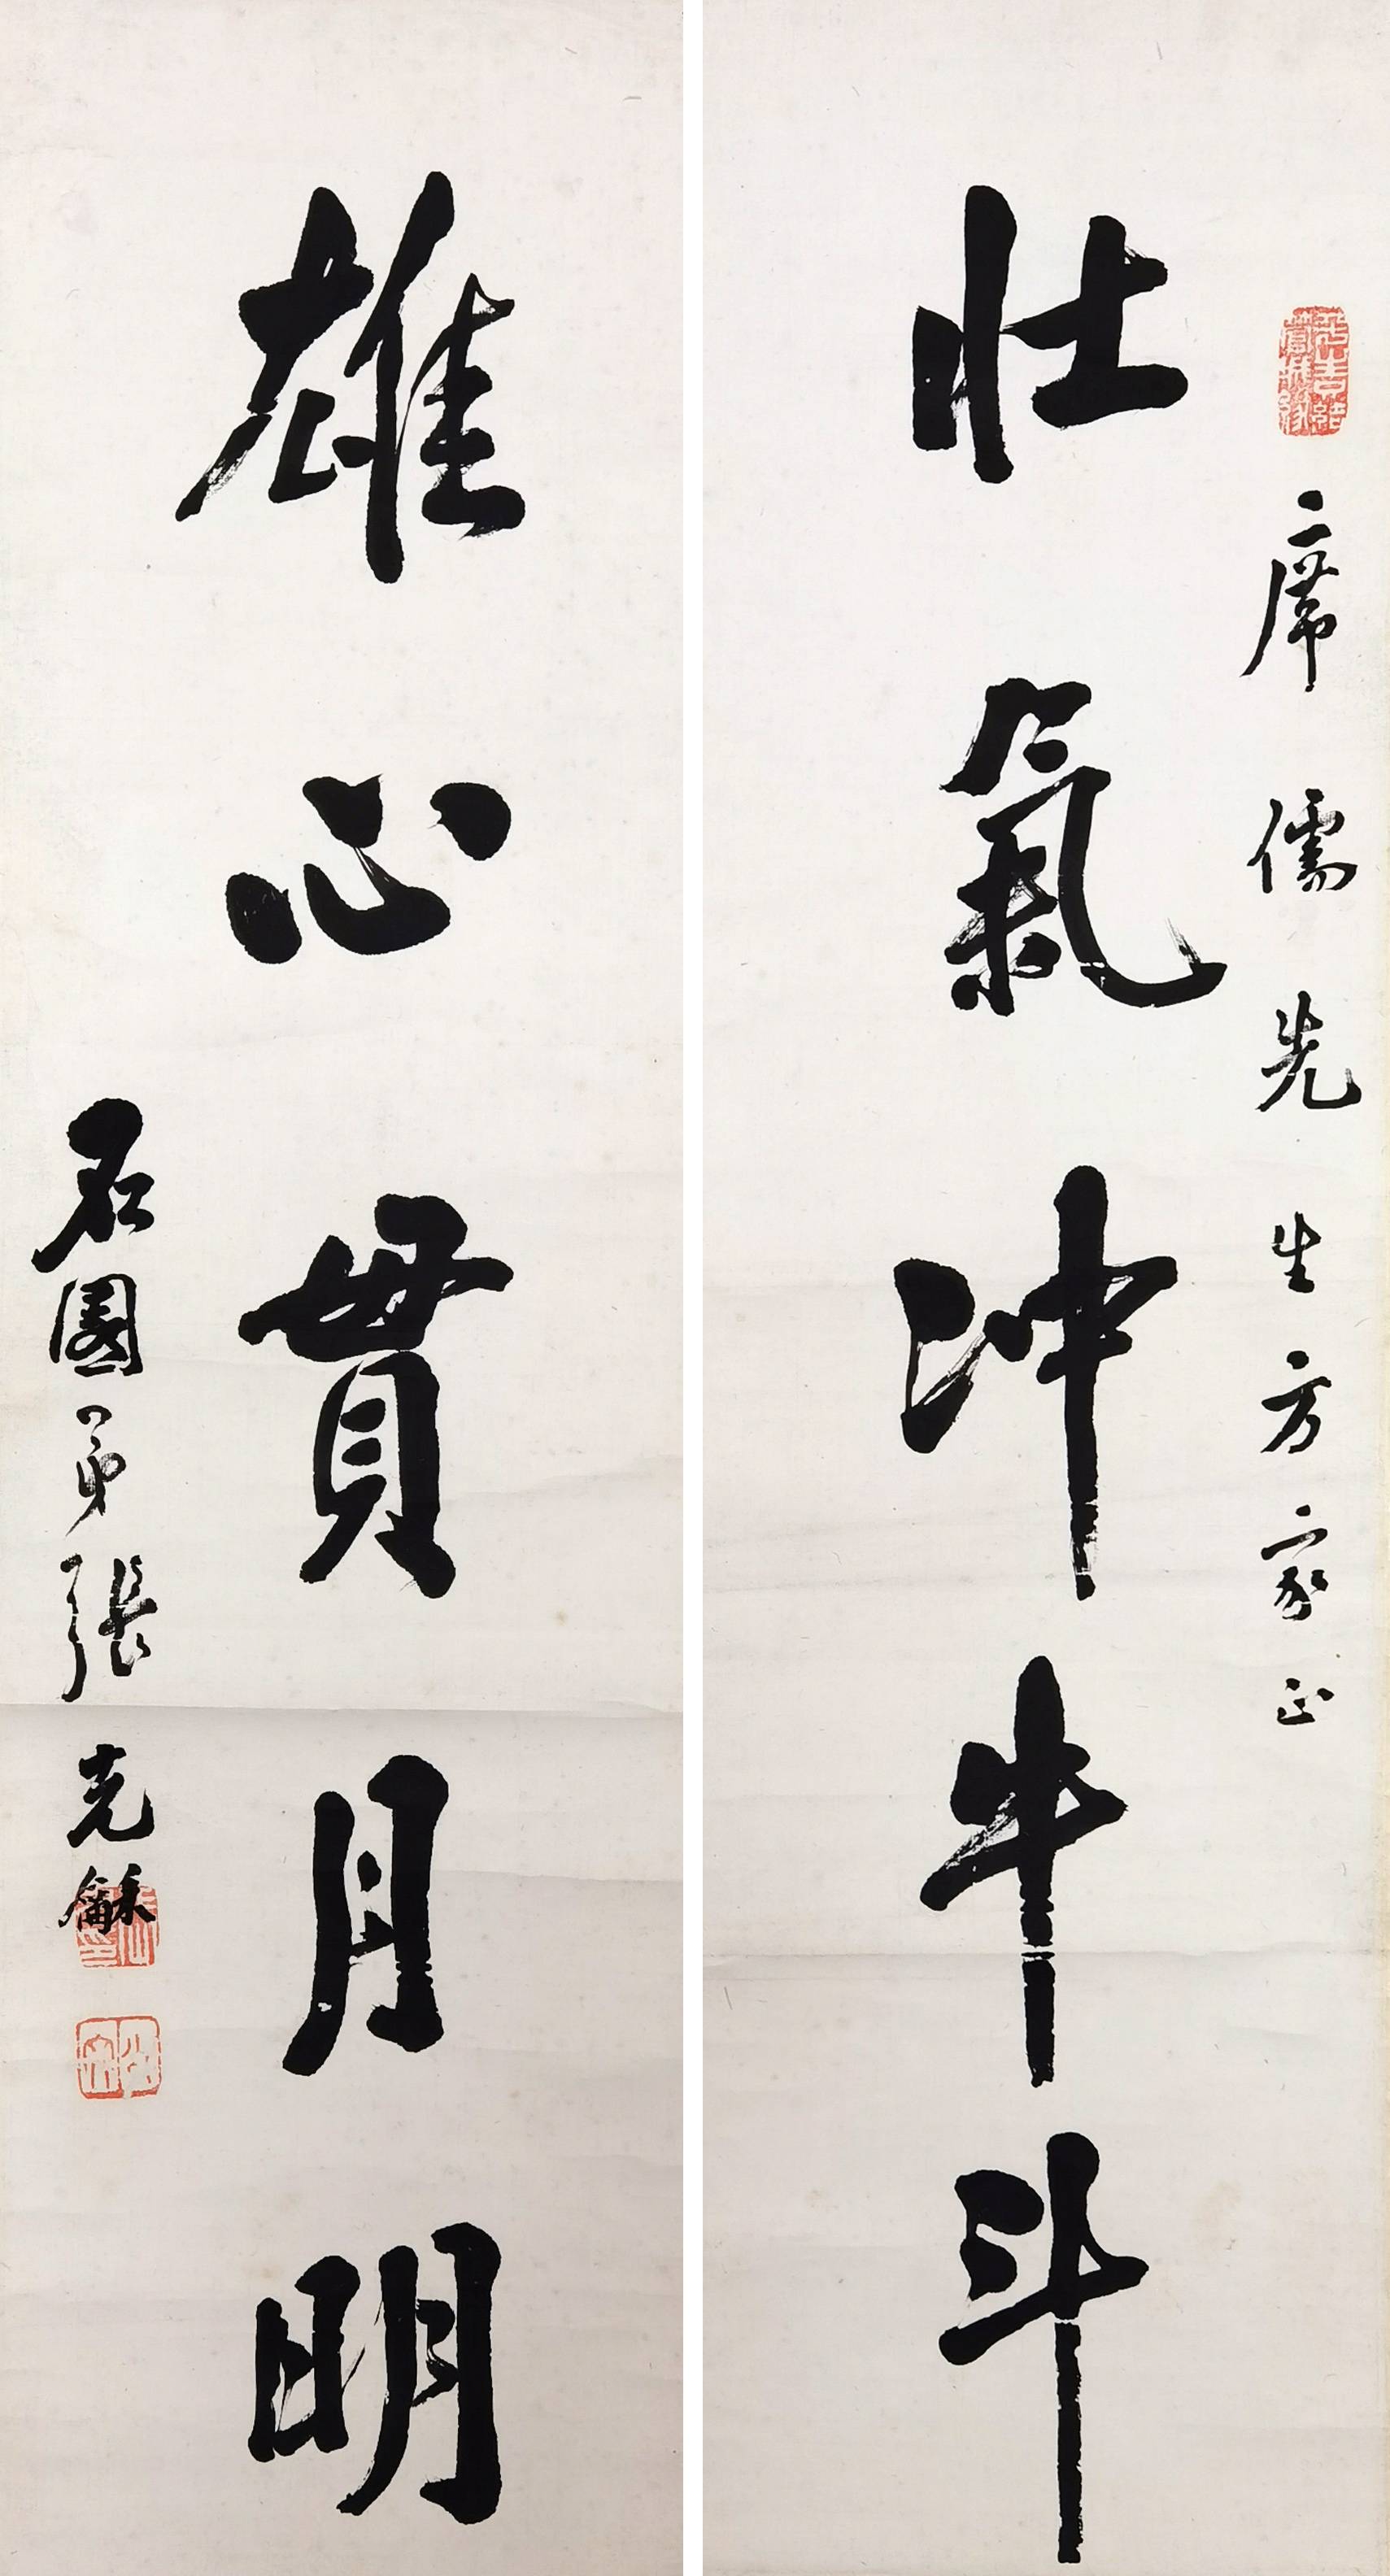 席儒先生方家正
壮氣冲牛斗
雄心貫月明
石園弟張克龢